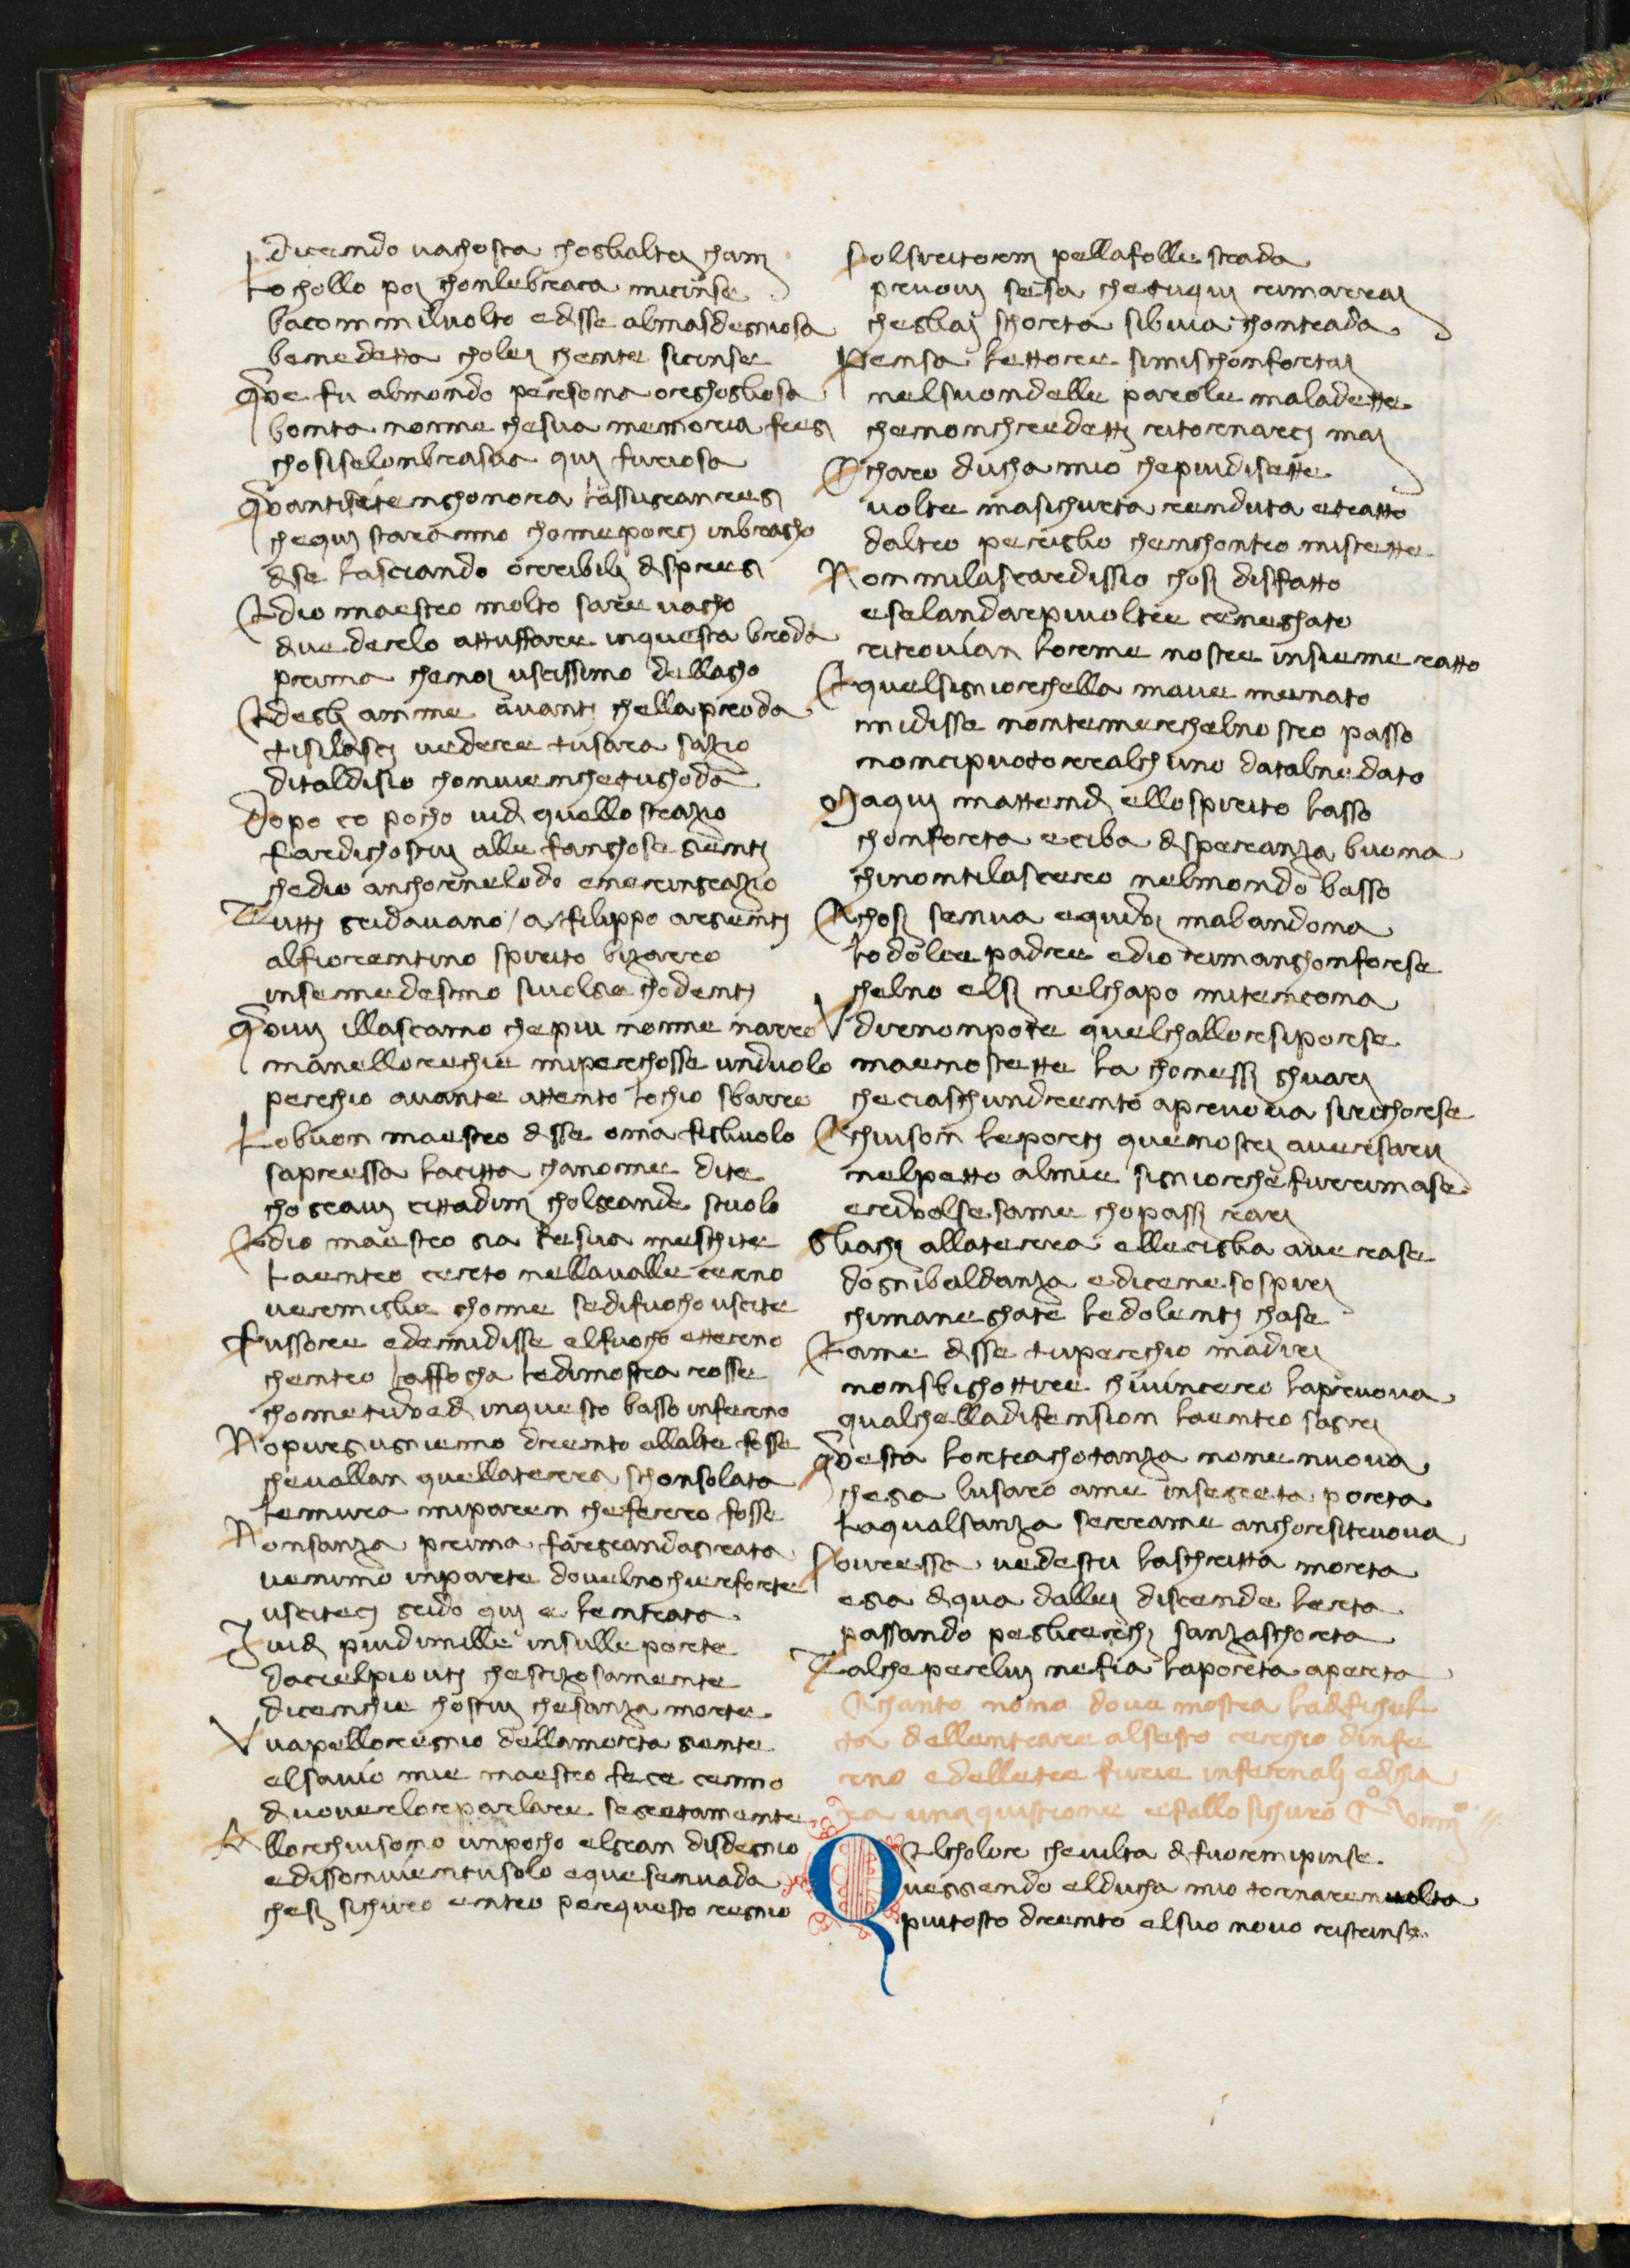 dicendo vachosta chogbaltri chani
Lo chollo poi chonlebraca micinse
bacommiluolto edisse almasdegniosa
benedetta cholei chente sicinse
Que fu almondo persona orghogliosa
bonta nonne chesua memoria fregi
chosiselonbrasua qui furiosa
Quantisitenghonora lassugranregi
chequi staranno chomeporci inbragho
dise lasciando orribili dispregi
Edio maestro molto sare vagho
diuederelo attuffare inquesta broda
prima chenoi uscissimo dellagho
Edegli amme avanti chellaproda
tisilasci vedere tusara sazio
ditaldisio chonvienchetughoda
Dopo co pocho vidi quello strazio
fardichostui alle fanghose gienti
chedio anchornelodo eneringrazio
Tutti gridavano / a filippo argienti
alfiorentino spirito bizarro
insemedesmo siuolgea chodenti
Quiui illasciamo chepiu nonne narro
manellorechie miperchosse unduolo
perchio avante attento lochio sbarro
Lobuon maestro disse oma figluolo
sapressa lacitta chanome dite
chograui cittadini cholgrande stuolo
Edio maestro gia lesua meschite
laentro certo nellavalle cerno
uermiglie chome sedifuocho uscite
Fussore edemidisse elfuocho etterno
chentro laffocha ledimostra rosse
chometuvedi inquesto basso inferno
Nopurgugniemo drento allalte fosse
chevallan quellaterra schonsolata
lemura miparen cheferro fosse
Nonsanza prima fargrandagirata
venimo inparte dovelnochierforte
usciteci grido qui e lentrata
Iuidi piudimille insulle porte
dacielpiouti chestizosamente
dicenchie chostui chesanza morte
Vuapelloregnio dellamorta giente
elsavio mie maestro fece cenno
diuoverloroparlare segretamente
Allorchiusono unpocho elgran disdegnio
edissonvientusolo eque senvada
chesi sichuro entro perquesto regnio
Solsiritorni pellafolle strada
pruovi sesa chetuqui rimarrai
chegliai schorta sibuia chontrada
Pensa lettore simischonfortai
nelsuondelle parole maladette
chenonchredetti ritornarci mai
O charo ducha mio chepiudisette
volte maisichurta renduta etratto
daltro periglio chenchontro mistette
Nonmilasciardissio chosi disfatto
eselandarpiuoltre ceneghato
ritrovian lorme nostre insieme ratto
Equelsigniorchella mavie menato
midisse nontemerchelnostro passo
noncipuotorrealchuno datalnedato
Maqui mattendi ellospirito lasso
chonforta eciba disperanza buona
chinontilascero nelmondo basso
Chosi senva equidoi mabandona
lodolce padre edio rimanghonforse
chelno elsi nelchapo mitenciona
Vdirenonpote quelchalloresiporse
maenostette la chonessi ghuari
checiaschundrento apruova sirichorse
Chiuson leporti quenostri aversari
nelpetto almie signiorchefurrimase
erivolsesame chopassi rari
Gliochi allaterra elleciglia averase
dognibaldanza edicene sospiri
chimaneghate ledolenti chase
Eame disse tuperchio madiri
nonsbighottire chivincero lapruova
qualchelladifension laentro sagiri
Questa lortrachotanza nonenuova
chegia lusaro ame insegreta porta
laqualsanza serrame anchorsitruova
Sovressa vedestu laschritta morta
egia diqua dallei discende lerta
passando peglicerchi sanzaschorta
Talcheperlui nefia laporta aperta
Chanto nono dove mostra ladifichul
ta dellentrare alsesto cerchio dinfe
rno edelletre furie infernali edichia
ra unaquistione efallosichuro
Quelcholore cheuilta di fuormipinse
veggiendo elducha mio tornareinvolta
piutosto drento elsuo novo ristrinse